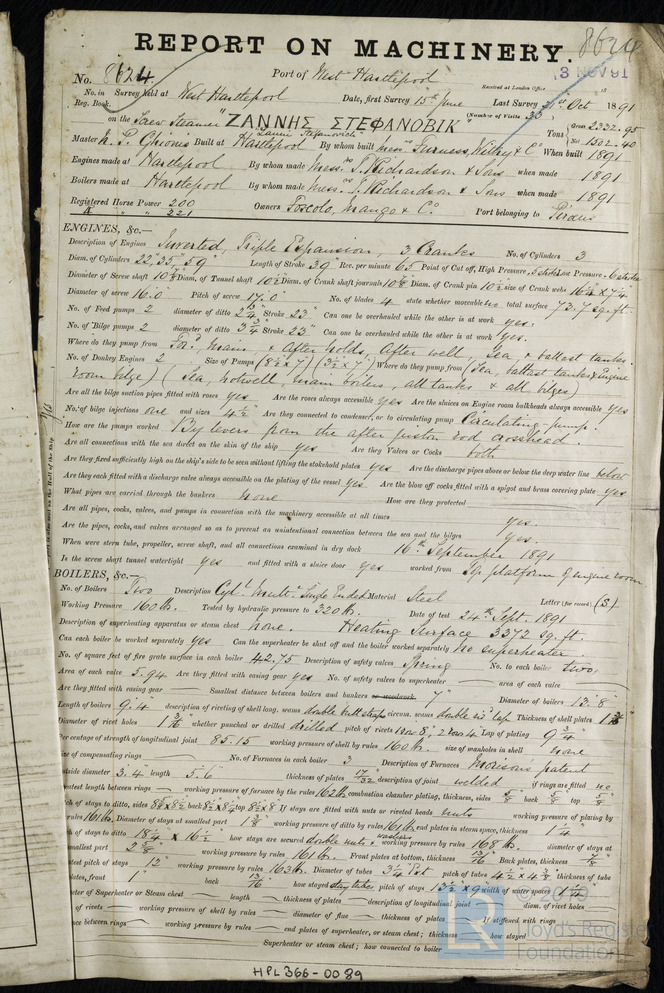 8624
REPORT ON MACHINERY.
No. 8624 Port of West Hartlepool
Received at London Office 3 NOV 91
No. in Reg. Book. Survey held at West Hartlepool Date, first Survey 15th June Last Survey 21st Oct 1891
on the Screw Steamer "ΖΑΝΝΗΣ ΣΤΕΦΑΝΟΒΙΚ" (Number of Visits 35)
"Zanni Stefanovich"
Tons Gross 2332.95 Net 1502.40
Master Built at Hartlepool By whom built Mess. Furness, Withy & Co When built 1891
Engines made at Hartlepool By whom made Messrs T. Richardson & Sons when made 1891
Boilers made at Hartlepool By whom made Messrs T. Richardson & Sons when made 1891
Registered Horse Power 200 Owners Foscolo, Mango & Co. Port belonging to Piraeus
221
ENGINES, &c.—
Description of Engines Inverted, Triple Expansion, 3 Cranks No. of Cylinders 3
Diam. of Cylinders 22", 35", 59" Length of Stroke 39" Rev. per minute 65 Point of Cut off, High Pressure Low Pressure
Diameter of Screw shaft Diam. of Tunnel shaft Diam. of Crank shaft journals Diam. of Crank pin size of Crank webs
Diameter of screw 16.0 Pitch of screw 17.0 No. of blades 4 state whether moveable no total surface 73.7 sq. ft.
No. of Feed pumps 2 diameter of ditto Stroke 23" Can one be overhauled while the other is at work yes.
No. of Bilge pumps 2 diameter of ditto 3 3/4 Stroke 23" Can one be overhauled while the other is at work yes.
Where do they pump from For'd, main & After holds, After well, Sea, & ballast tanks.
No. of Donkey Engines 2 Size of Pumps (8½ x 7") (3½ x 7") Where do they pump from (Sea, ballast tanks & Engine
room bilge) (Sea, hotwell, main boilers, all tanks & all bilges)
Are all the bilge suction pipes fitted with roses yes Are the roses always accessible yes Are the sluices on Engine room bulkheads always accessible yes
No. of bilge injections one and sizes 4½ Are they connected to condenser, or to circulating pump Circulating pump.
How are the pumps worked By levers from the after piston rod crosshead.
Are all connections with the sea direct on the skin of the ship yes Are they Valves or Cocks both
Are they fixed sufficiently high on the ship's side to be seen without lifting the stokehold plates yes Are the discharge pipes above or below the deep water line below
Are they each fitted with a discharge valve always accessible on the plating of the vessel yes Are the blow off cocks fitted with a spigot and brass covering plate yes
What pipes are carried through the bunkers none How are they protected
Are all pipes, cocks, valves, and pumps in connection with the machinery accessible at all times yes.
Are the pipes, cocks, and valves arranged so as to prevent an unintentional connection between the sea and the bilges yes.
When were stern tube, propeller, screw shaft, and all connections examined in dry dock 16th September 1891
Is the screw shaft tunnel watertight yes and fitted with a sluice door yes worked from Top platform of engine room
BOILERS, &c.—
No. of Boilers Two Description Cyl. Mult. Single Ended Material Steel Letter (for record) (S)
Working Pressure 160 lb. Tested by hydraulic pressure to 320 lb. Date of test 24th Sept. 1891
Description of superheating apparatus or steam chest none. Heating Surface 3372 sq. ft.
Can each boiler be worked separately yes Can the superheater be shut off and the boiler worked separately no superheater.
No. of square feet of fire grate surface in each boiler 42.75 Description of safety valves Spring No. to each boiler two.
Area of each valve 5.94 Are they fitted with easing gear yes No. of safety valves to superheater area of each valve
Are they fitted with easing gear Smallest distance between boilers and bunkers or woodwork 7" Diameter of boilers 13'8"
Length of boilers 9'4 description of riveting of shell long. seams double butt strap circum. seams double riv'd lap Thickness of shell plates
Diameter of rivet holes whether punched or drilled drilled pitch of rivets Lap of plating
Percentage of strength of longitudinal joint 85.15 working pressure of shell by rules 160 lb. size of manholes in shell none
Size of compensating rings No. of Furnaces in each boiler 3 Description of Furnaces Morison's patent
outside diameter 3.4 length 5.6 thickness of plates 17/32 description of joint welded if rings are fitted no
greatest length between rings working pressure of furnace by the rules 162 lb combustion chamber plating, thickness, sides 5/8 back 5/8 top 5/8
pitch of stays to ditto, sides back top If stays are fitted with nuts or riveted heads nuts working pressure of plating by
rules 161 lb. Diameter of stays at smallest part 1 3/8 working pressure of ditto by rules 161 lb. end plates in steam space, thickness 1 1/4
pitch of stays to ditto 18½ x 16½ how stays are secured double nuts & washers working pressure by rules 168 lb. diameter of stays at
smallest part working pressure by rules 161 lb. Front plates at bottom, thickness 13/16 Back plates, thickness 7/8
greatest pitch of stays 12" working pressure by rules 163 lb. Diameter of tubes 3¼ pitch of tubes thickness of tube
plates, front 1" back 13/16 how stayed stay tubes pitch of stays 13½ x 9 width of water spaces
Diameter of Superheater or Steam chest length thickness of plates description of longitudinal joint diam. of rivet holes
pitch of rivets working pressure of shell by rules diameter of flue thickness of plates If stiffened with rings
distance between rings working pressure by rules end plates of superheater, or steam chest; thickness how stayed
Superheater or steam chest; how connected to boiler
HPL366-0089
Lloyd's Register
Foundation